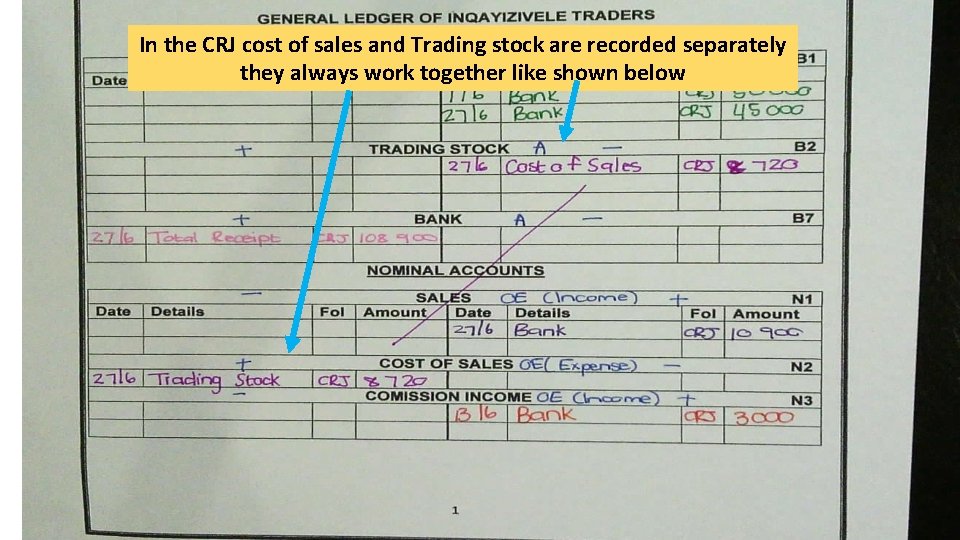 GENERAL LEDGER OF INQAYIZIVELE TRADERS
In the CRJ cost of sales and Trading stock are recorded separately
they always work together like shown below
B1
Date
1/6 Bank CRJ
27/6 Bank CRJ 45 000
+ TRADING STOCK A — B2
27/6 Cost of Sales CRJ 8 720
+ BANK A — B7
27/6 Total Receipt CRJ 108 900
NOMINAL ACCOUNTS
— SALES OE (Income) + N1
Date Details Fol Amount Date Details Fol Amount
27/6 Bank CRJ 10 900
+ COST OF SALES OE( Expense) — N2
27/6 Trading Stock CRJ 8 720
— COMISSION INCOME OE (Income) + N3
Bank CRJ 3000
1